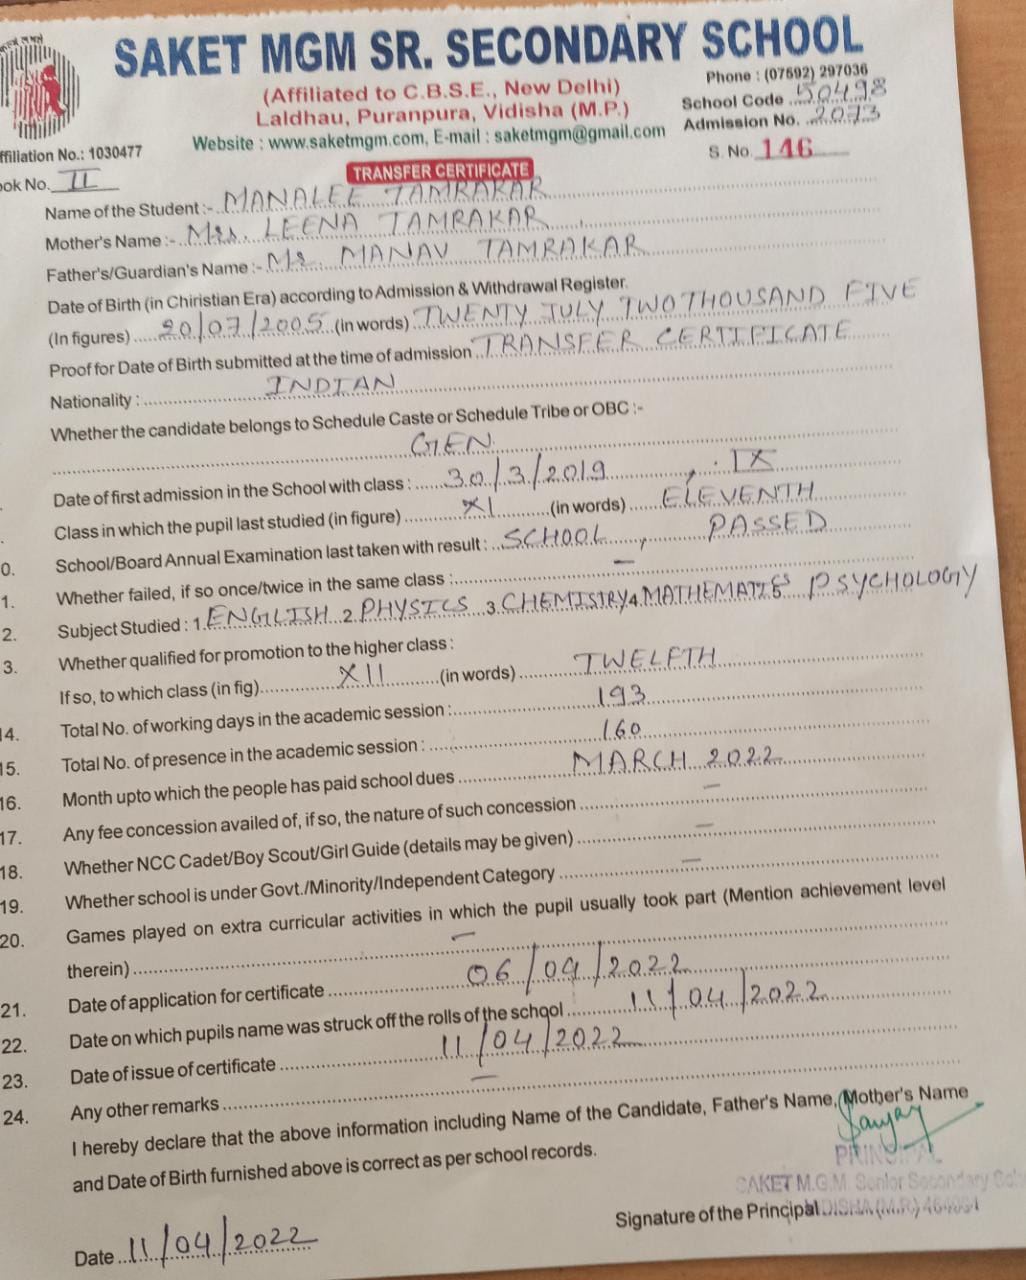 SAKET MGM SR. SECONDARY SCHOOL
(Affiliated to C.B.S.E., New Delhi)
Laldhau, Puranpura, Vidisha (M.P.)
Website : www.saketmgm.com, E-mail : saketmgm@gmail.com
Phone : (07592) 297036
School Code ...50498
Admission No. ..2073
S. No. 146
ffiliation No.: 1030477
ok No. II
TRANSFER CERTIFICATE
Name of the Student :- MANALEE TAMRAKAR
Mother's Name :- Mrs. LEENA TAMRAKAR
Father's/Guardian's Name :- Mr. MANAV TAMRAKAR
Date of Birth (in Chiristian Era) according to Admission & Withdrawal Register.
(In figures) 20/07/2005 (in words) TWENTY JULY TWO THOUSAND FIVE
Proof for Date of Birth submitted at the time of admission TRANSFER CERTIFICATE
Nationality : INDIAN
Whether the candidate belongs to Schedule Caste or Schedule Tribe or OBC :-
GEN.
Date of first admission in the School with class : 30/3/2019, IX
Class in which the pupil last studied (in figure) XI (in words) ELEVENTH
0. School/Board Annual Examination last taken with result : SCHOOL, PASSED
1. Whether failed, if so once/twice in the same class : –
2. Subject Studied : 1. ENGLISH 2. PHYSICS 3. CHEMISTRY 4. MATHEMATICS 5 PSYCHOLOGY
3. Whether qualified for promotion to the higher class :
If so, to which class (in fig) XII (in words) TWELFTH
14. Total No. of working days in the academic session : 193
15. Total No. of presence in the academic session : 160
16. Month upto which the people has paid school dues MARCH 2022
17. Any fee concession availed of, if so, the nature of such concession –
18. Whether NCC Cadet/Boy Scout/Girl Guide (details may be given) –
19. Whether school is under Govt./Minority/Independent Category –
20. Games played on extra curricular activities in which the pupil usually took part (Mention achievement level
therein) –
21. Date of application for certificate 06/04/2022
22. Date on which pupils name was struck off the rolls of the school 11/04/2022
23. Date of issue of certificate 11/04/2022
24. Any other remarks –
I hereby declare that the above information including Name of the Candidate, Father's Name, Mother's Name
and Date of Birth furnished above is correct as per school records.
Sanjay
PRINCIPAL
SAKET M.G.M. Senior Secondary
Signature of the Principal
Date 11/04/2022